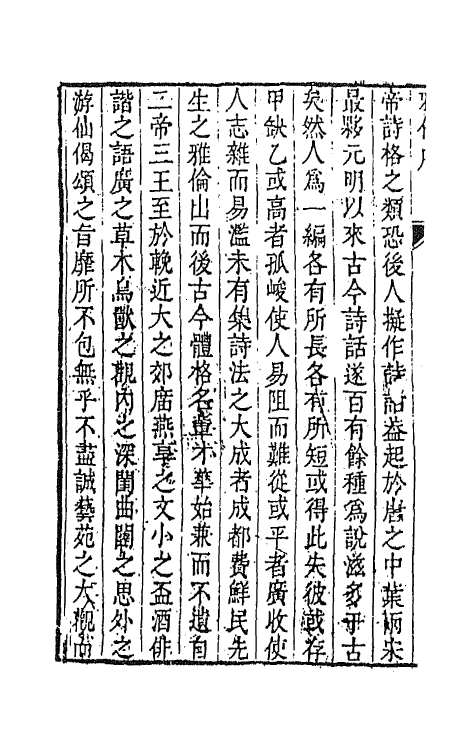 雅倫序
帝詩格之類恐後人擬作詩話益起於唐之中葉兩宋
最夥元明以來古今詩話遂百有餘種爲說滋多乎古
矣然人爲一編各有所長各有所短或得此失彼或存
甲缺乙或高者孤峻使人易阻而難從或平者廣收使
人志雜而易濫未有集詩法之大成者成都費鮮民先
生之雅倫出而後古今體格名單才華始兼而不遺自
二帝三王至於輓近大之郊庙燕享之文小之盃酒俳
諧之語廣之草木鳥獸之觀內之深閨曲闥之思外之
游仙偈頌之旨靡所不包無乎不盡誠藝苑之大觀尚